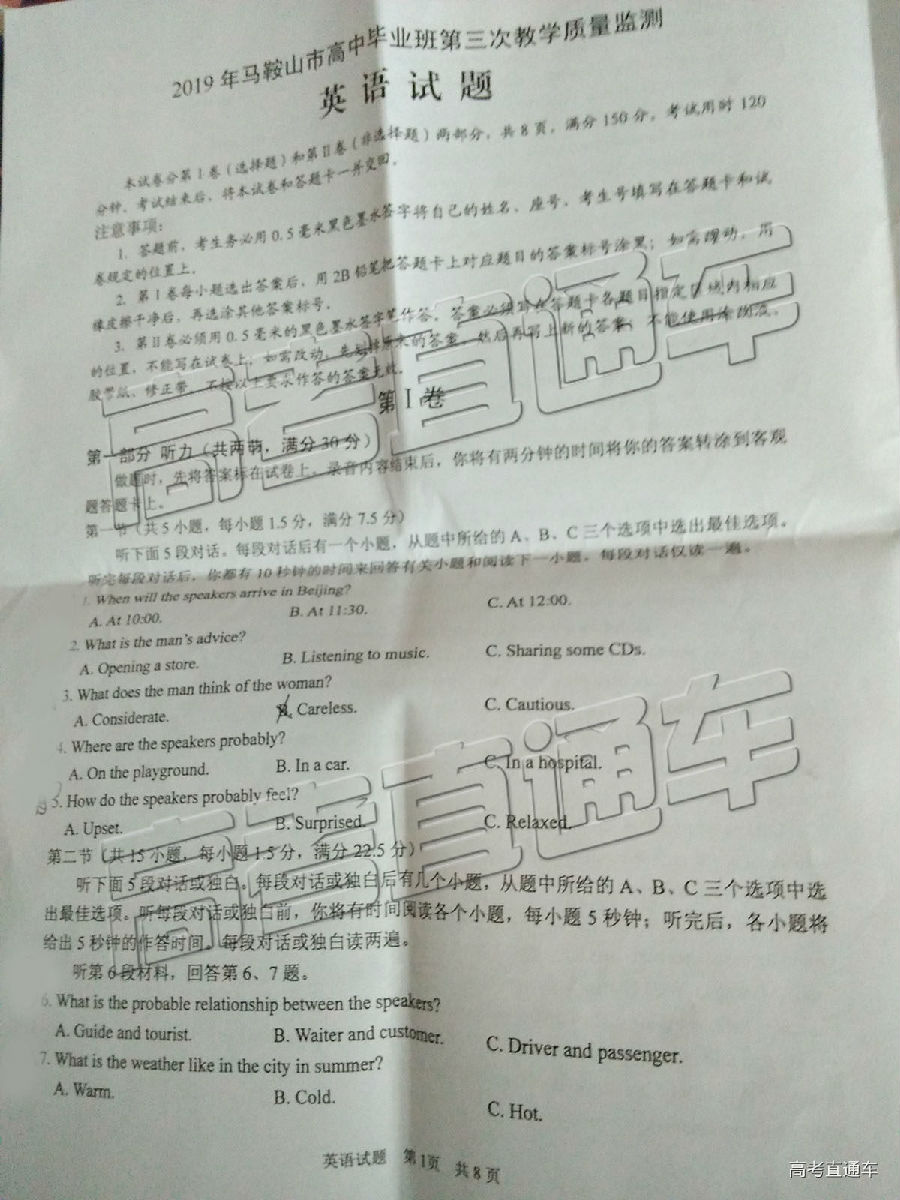 2019年马鞍山市高中毕业班第三次教学质量监测
英语试题
本试卷分第Ⅰ卷（选择题）和第Ⅱ卷（非选择题）两部分，共8页，满分150分，考试用时120
分钟。考试结束后，将本试卷和答题卡一并交回。
注意事项：
1. 答题前，考生务必用0.5毫米黑色墨水签字将自己的姓名、座号、考生号填写在答题卡和试
卷规定的位置上。
2. 第Ⅰ卷每小题选出答案后，用2B铅笔把答题卡上对应题目的答案标号涂黑；如需改动，用
橡皮擦干净后，再选涂其他答案标号。
3. 第Ⅱ卷必须用0.5毫米的黑色墨水签字笔作答，答案必须写在答题卡各题目指定区域内相应
的位置，不能写在试卷上；如需改动，先划掉原来的答案，然后再写上新的答案；不能使用涂改液、
胶带纸、修正带。不按以上要求作答的答案无效。
第Ⅰ卷
第一部分 听力（共两节，满分30分）
做题时，先将答案标在试卷上。录音内容结束后，你将有两分钟的时间将你的答案转涂到客观
题答题卡上。
第一节（共5小题，每小题1.5分，满分7.5分）
听下面5段对话。每段对话后有一个小题，从题中所给的A、B、C三个选项中选出最佳选项。
听完每段对话后，你都有10秒钟的时间来回答有关小题和阅读下一小题。每段对话仅读一遍。
1. When will the speakers arrive in Beijing?
A. At 10:00. B. At 11:30. C. At 12:00.
2. What is the man's advice?
A. Opening a store. B. Listening to music. C. Sharing some CDs.
3. What does the man think of the woman?
A. Considerate. B. Careless. C. Cautious.
4. Where are the speakers probably?
A. On the playground. B. In a car. C. In a hospital.
5. How do the speakers probably feel?
A. Upset. B. Surprised. C. Relaxed.
第二节（共15小题，每小题1.5分，满分22.5分）
听下面5段对话或独白。每段对话或独白后有几个小题，从题中所给的A、B、C三个选项中选
出最佳选项。听每段对话或独白前，你将有时间阅读各个小题，每小题5秒钟；听完后，各小题将
给出5秒钟的作答时间。每段对话或独白读两遍。
听第6段材料，回答第6、7题。
6. What is the probable relationship between the speakers?
A. Guide and tourist. B. Waiter and customer. C. Driver and passenger.
7. What is the weather like in the city in summer?
A. Warm. B. Cold. C. Hot.
英语试题 第1页 共8页
高考直通车
高考直通车
高考直通车